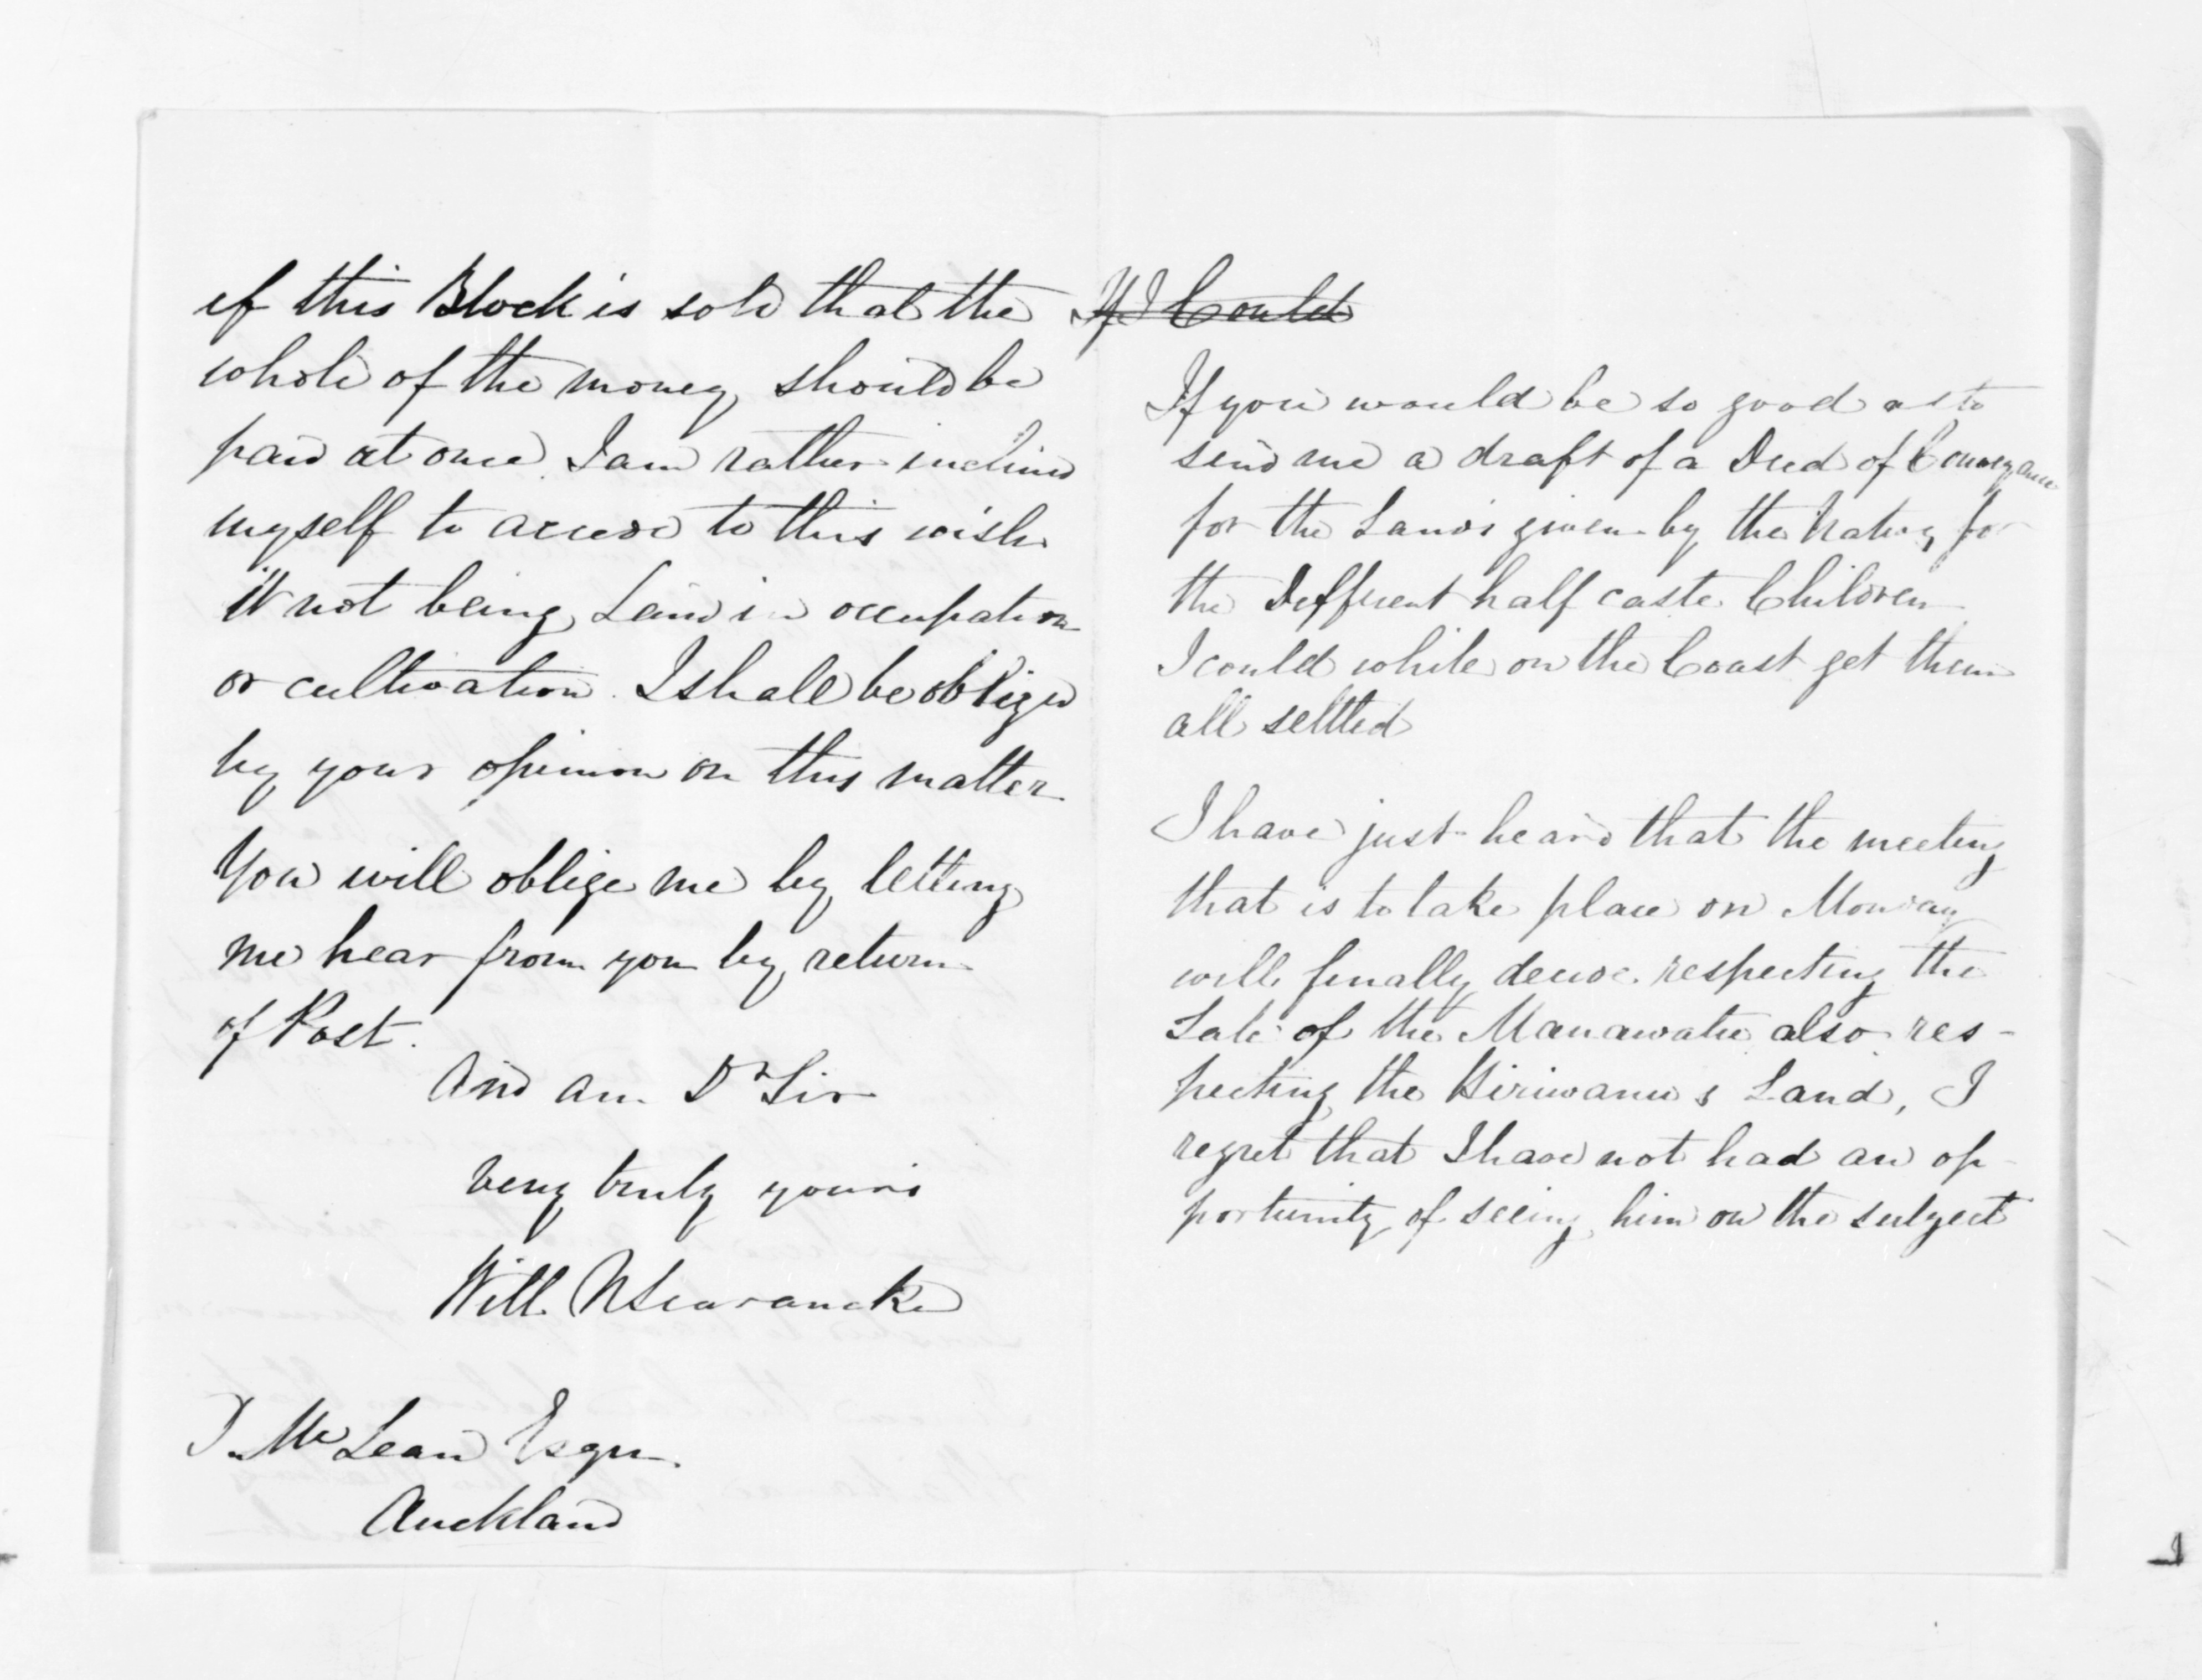 if this Block is sold that the
whole of the money should be
paid at once I am rather inclined
myself to accede to this wish
it not being Land in occupation
or cultivation. I shall be obliged
by your opinion on this matter
You will oblige me by letting
me hear from you by return
of Post.
And am Dr Sir
very truly yours
Will. N Searancke
D. McLean Esqre.
Auckland
If I Could
If you would be so good as to
send me a draft of a Deed of Conveyance
for the Lands given by the Natives for
the Different half caste Children
I could while on the Coast get them
all settled
I have just heard that the meeting
that is to take place on Monday
will finally decide respecting the
Sale of the Manawatu also res-
pecting the Hiriwanu s Land, I
regret that I have not had an op-
portunity of seeing him on the subject